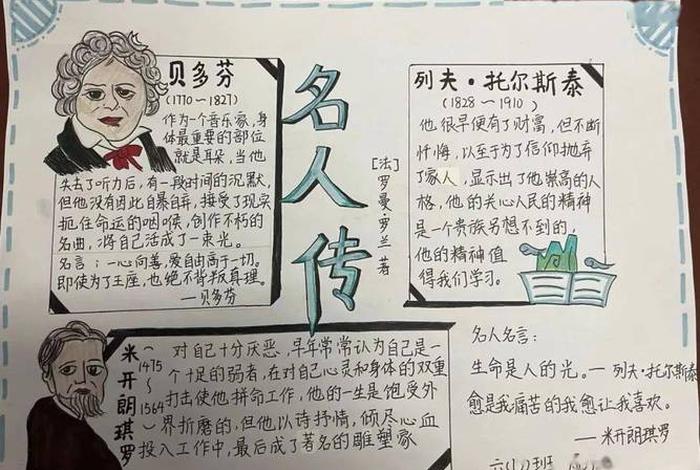 贝多芬
(1770～1827)
作为一个音乐家,身
体最重要的部位
就是耳朵,当他
失去了听力后,有一段时间的沉默,
但他没有因此自暴自弃,接受了现实
扼住命运的咽喉,创作不朽的
名曲,将自己活成了一束光。
名言:一心向善,爱自由高于一切。
即使为了王座,也绝不背叛真理。
—贝多芬
名人传
[法]罗曼·罗兰 著
列夫·托尔斯泰
(1828～1910)
他很早便有了财富,但不断
忏悔,以至于为了信仰抛弃
了家人,显示出了他崇高的人
格,他的关心人民的精神
是一个贵族另想不到的,
他的精神值
得我们学习。
米开朗琪罗
(1475～1564)
对自己十分厌恶,早年常常认为自己是一
个十足的弱者,在对自己心灵和身体的双重
打击使他拼命工作,他的一生是饱受外
界折磨的,但他以诗抒情,倾尽心血
投入工作中,最后成了著名的雕塑家
名人名言:
生命是人的光。—列夫·托尔斯泰
愈是我痛苦的我愈让我喜欢。
—米开朗琪罗
六(1)班